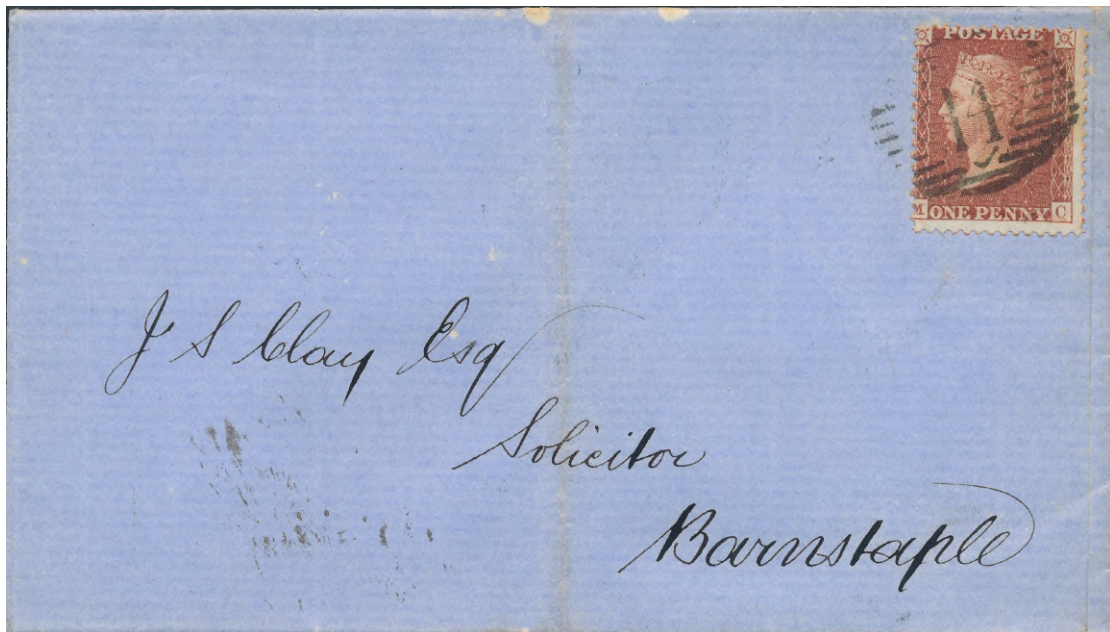 POSTAGE
M ONE PENNY C
J S Clay Esq
Solicitor
Barnstaple